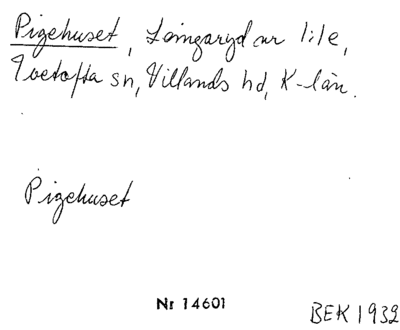 Pigehuset, Loingaryd nr 1:1e,
Ivetofta sn, Villands hd, K-län.
Pigehuset
Nr 14601
BEK 1932